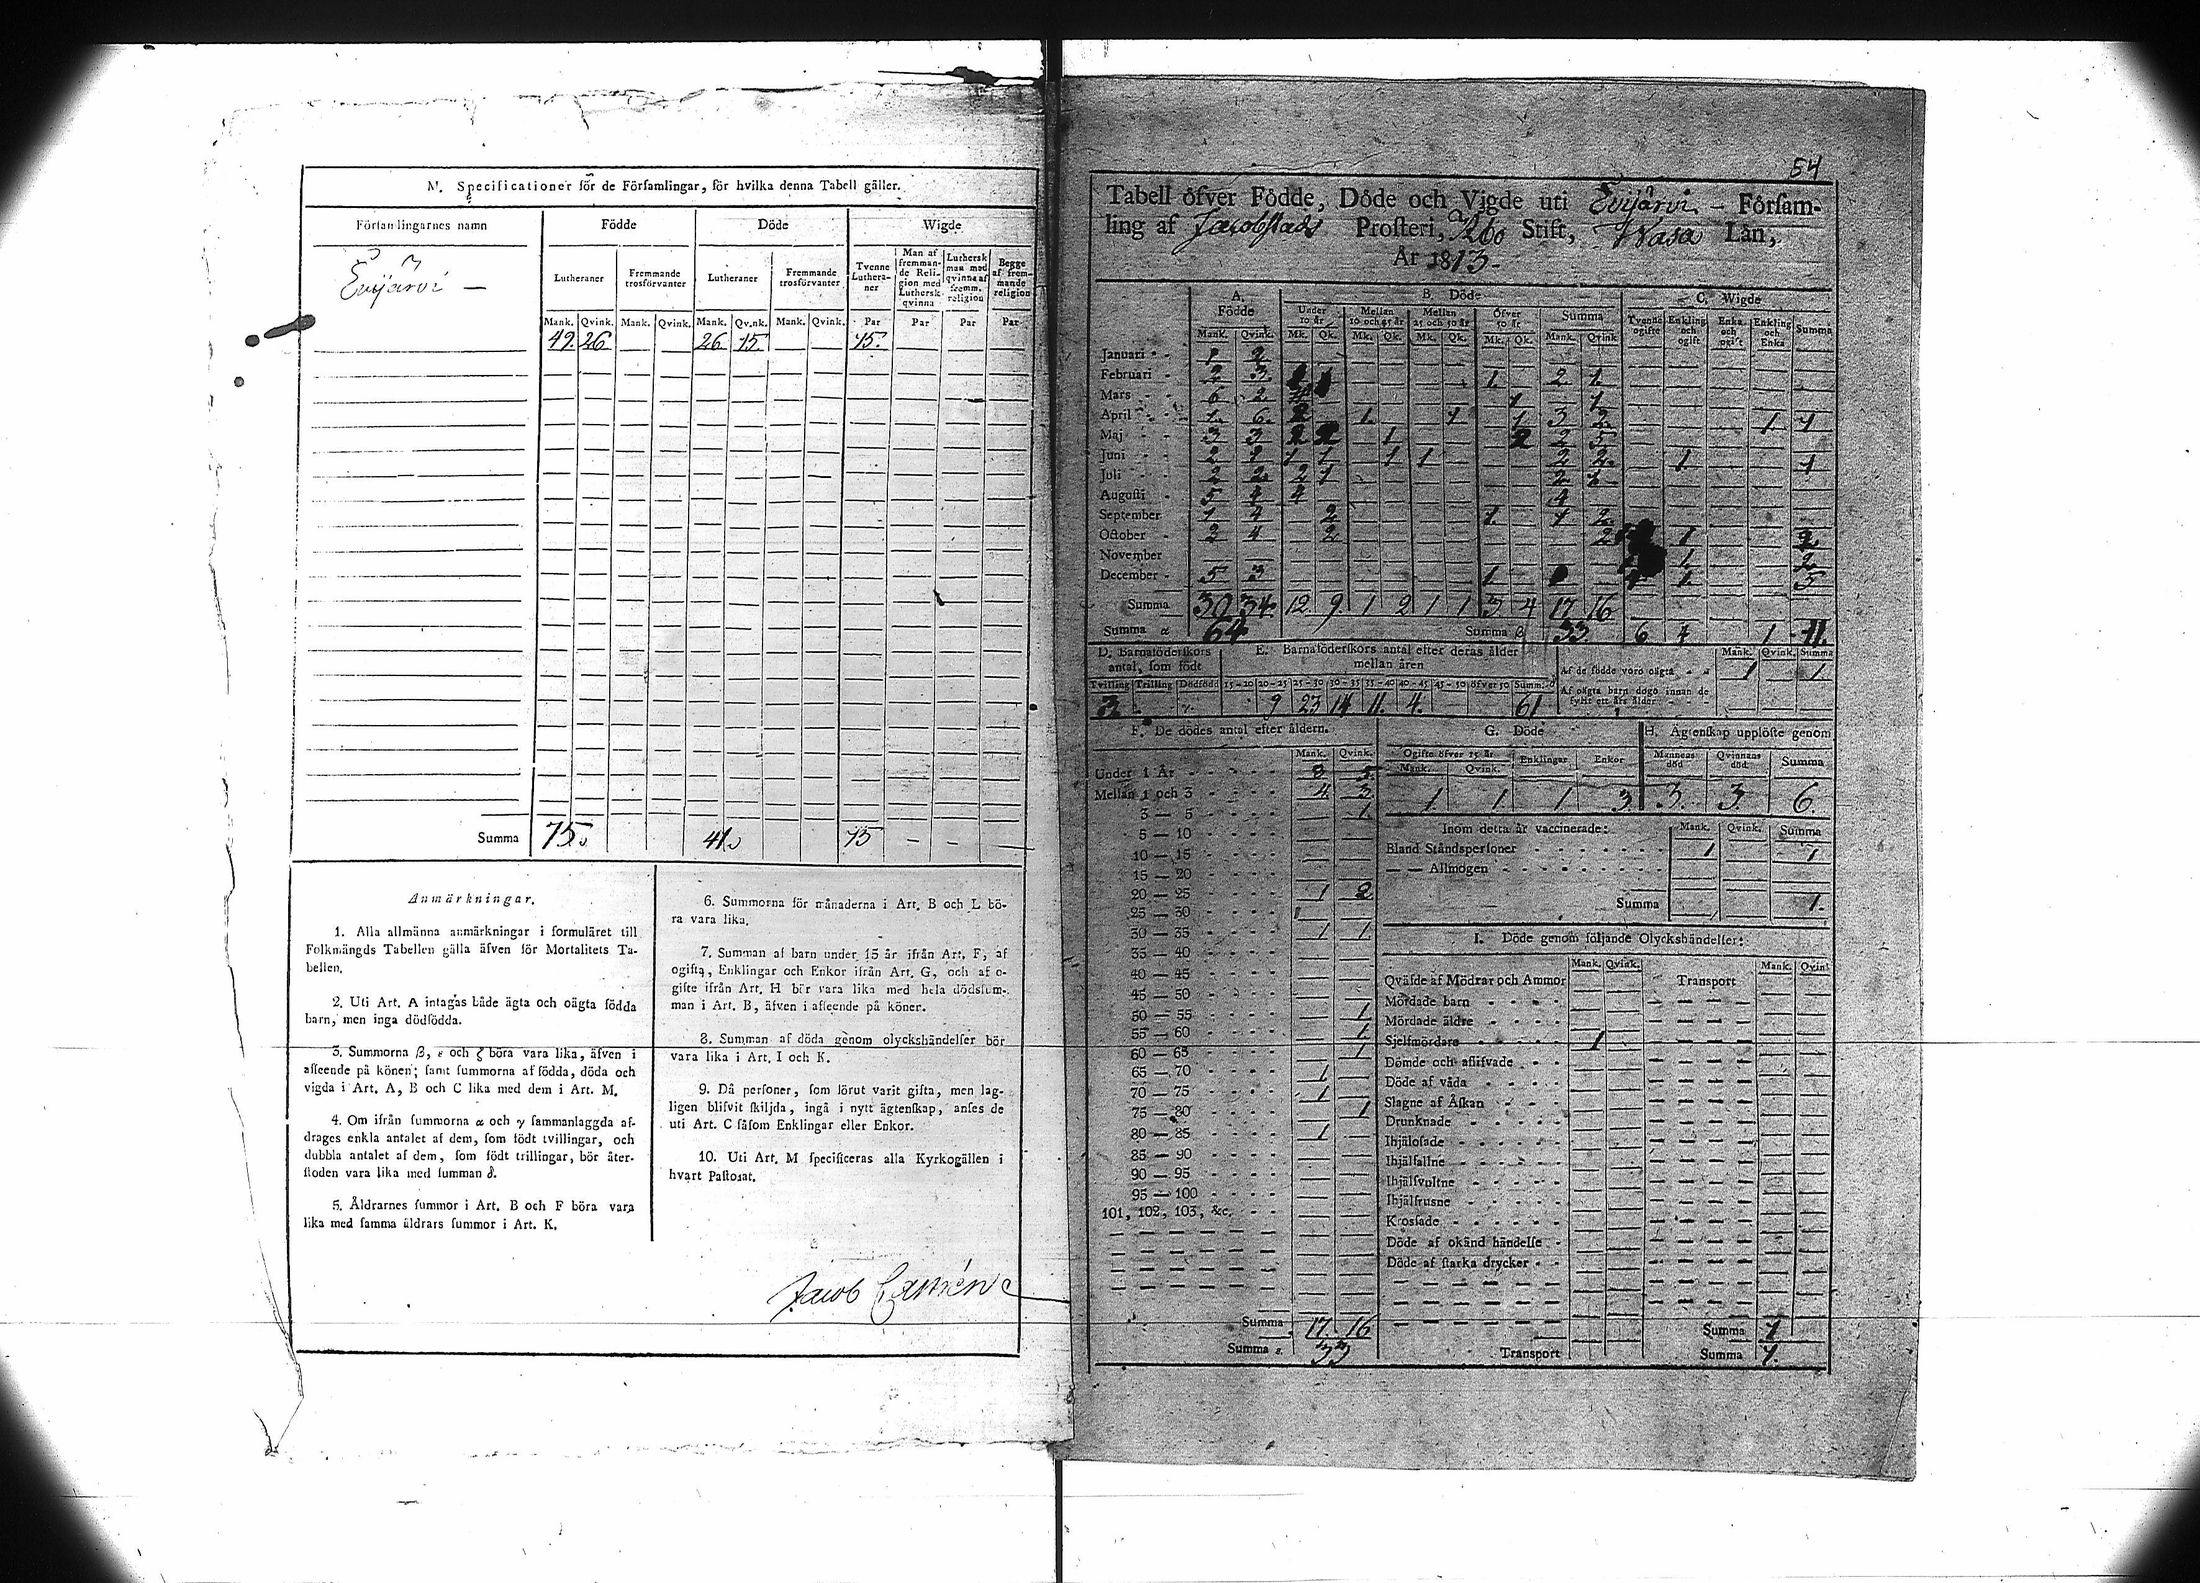 M. Specificationer för de Församlingar, för hvilka denna Tabell gäller.
Församlingarnes namn
Födde
Döde
Wigde
Lutheraner
Fremmande trosförvanter
Lutheraner
Fremmande trosförvanter
Tvenne Lutheraner
Man af fremmande Religion med Luthersk qvinna
Luthersk man med qvinna af fremm. religion
Begge af fremmande religion
Mank. Qvink. Mank. Qvink. Mank. Qvink. Mank. Qvink. Par Par Par Par
Evijärvi — 49. 26 26 15 15.
Summa 75. 41. 15 - - —
Anmärkningar.
1. Alla allmänna anmärkningar i formuläret till
Folkmängds Tabellen gälla äfven för Mortalitets Ta-
bellen.
2. Uti Art. A intagas både ägta och oägta födda
barn, men inga dödfödda.
3. Summorna β, ε och ζ böra vara lika, äfven i
afseende på könen; samt summorna af födda, döda och
vigda i Art. A, B och C lika med dem i Art. M.
4. Om ifrån summorna α och γ sammanlaggda af-
drages enkla antalet af dem, som födt tvillingar, och
dubbla antalet af dem, som födt trillingar, bör åter-
stoden vara lika med summan δ.
5. Åldrarnes summor i Art. B och F böra vara
lika med samma åldrars summor i Art. K.
6. Summorna för månaderna i Art. B och L bö-
ra vara lika.
7. Summan af barn under 15 år ifrån Art. F, af
ogifta, Enklingar och Enkor ifrån Art. G, och af o-
gifte ifrån Art. H bör vara lika med hela dödssum-
man i Art. B, äfven i afseende på köner.
8. Summan af döda genom olyckshändelser bör
vara lika i Art. I och K.
9. Då personer, som förut varit gifta, men lag-
ligen blifvit skiljda, ingå i nytt ägtenskap, anses de
uti Art. C såsom Enklingar eller Enkor.
10. Uti Art. M specificeras alla Kyrkogällen i
hvart Pastorat.
54
Tabell öfver Födde, Döde och Vigde uti Evijärvi - Församling
ling af Jacobstads Prosteri, Åbo Stift, Wasa Län,
År 1813.
A. Födde
B. Döde
C. Wigde
Under 10 år
Mellan 10 och 25 år
Mellan 25 och 50 år
Öfver 50 år
Summa
Tvenne ogifte
Enkling och ogift
Enka och ogift
Enkling och Enka
Summa
Mank. Qvink. Mk. Qk. Mk. Qk. Mk. Qk. Mk. Qk. Mank. Qvink
Januari 1 2
Februari 2 3 1 1. 2 1.
Mars 6 2 1 1
April 1. 6. 1. 1 1 3 2. 1 1
Maj 3 3 2 2 1 2 2 5
Juni 2 3 1 1 1 1 2 2. 1 1
Juli 2 2 2 1 2 1
Augusti 5 4 4 4
September 1 4 2 1. 1 2
October 2 4 2 2 1 2
November 1. 2
December 5 3 1 1. 5
Summa 30 34. 12 9 1 2 1 1 3 4 17 16
Summa α 64 Summa β 33 6 4 1 11.
D. Barnaföderskors antal, som födt
Tvilling Trilling Dödfödd
3
E. Barnaföderskors antal efter deras ålder mellan åren
15-20 20-25 25-30 30-35 35-40 40-45 45-50 öfver 50 Summa δ
9 23 14 11. 4. 61
Mank. Qvink. Summa
Af de födde voro oägta 1 1.
Af oägta barn dogo innan de fyllt ett års ålder
F. De dödes antal efter åldern.
Mank. Qvink.
Under 1 År 8 5
Mellan 1 och 3 4 3
3 — 5 1
5 — 10
10 — 15
15 — 20
20 — 25 1 2
25 — 30
30 — 35 1 1
35 — 40
40 — 45
45 — 50
50 — 55 1
55 — 60 1
60 — 65 1
65 — 70 1
70 — 75 1
75 — 80 1
80 — 85 1
85 — 90
90 — 95
95 — 100
101, 102, 103, &c.
Summa 17. 16
Summa ε. 33
G. Döde
Ogifte öfver 15 år
Mank. Qvink.
Enklingar
Enkor
1 1 1 3
H. Ägtenskap upplöste genom
Mannens död
Qvinnans död
Summa
3. 3. 6.
Inom detta år vaccinerade:
Mank. Qvink. Summa
Bland Ståndspersoner 1 1
— — Allmogen
Summa 1.
I. Döde genom följande Olyckshändelser:
Mank. Qvink.
Transport
Mank. Qvink
Qväfde af Mödrar och Ammor
Mördade barn
Mördade äldre
Sjelfmördare 1
Dömde och aflifvade
Döde af våda
Slagne af Åskan
Drunknade
Ihjälosade
Ihjälfallne
Ihjälsvultne
Ihjälfrusne
Krossade
Döde af okänd händelse
Döde af starka drycker
Summa 1
Transport
Summa 1.